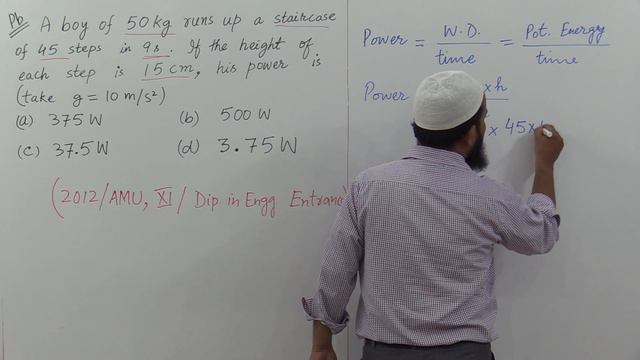 Pb A boy of 50 kg runs up a staircase
of 45 steps in 9s. If the height of
each step is 15 cm, his power is
(take g = 10 m/s²)
(a) 375 W (b) 500 W
(c) 37.5 W (d) 3.75 W
(2012/AMU, XI/ Dip in Engg Entrance)
Power = W.D. / time = Pot. Energy / time
Power × h
× 45 ×